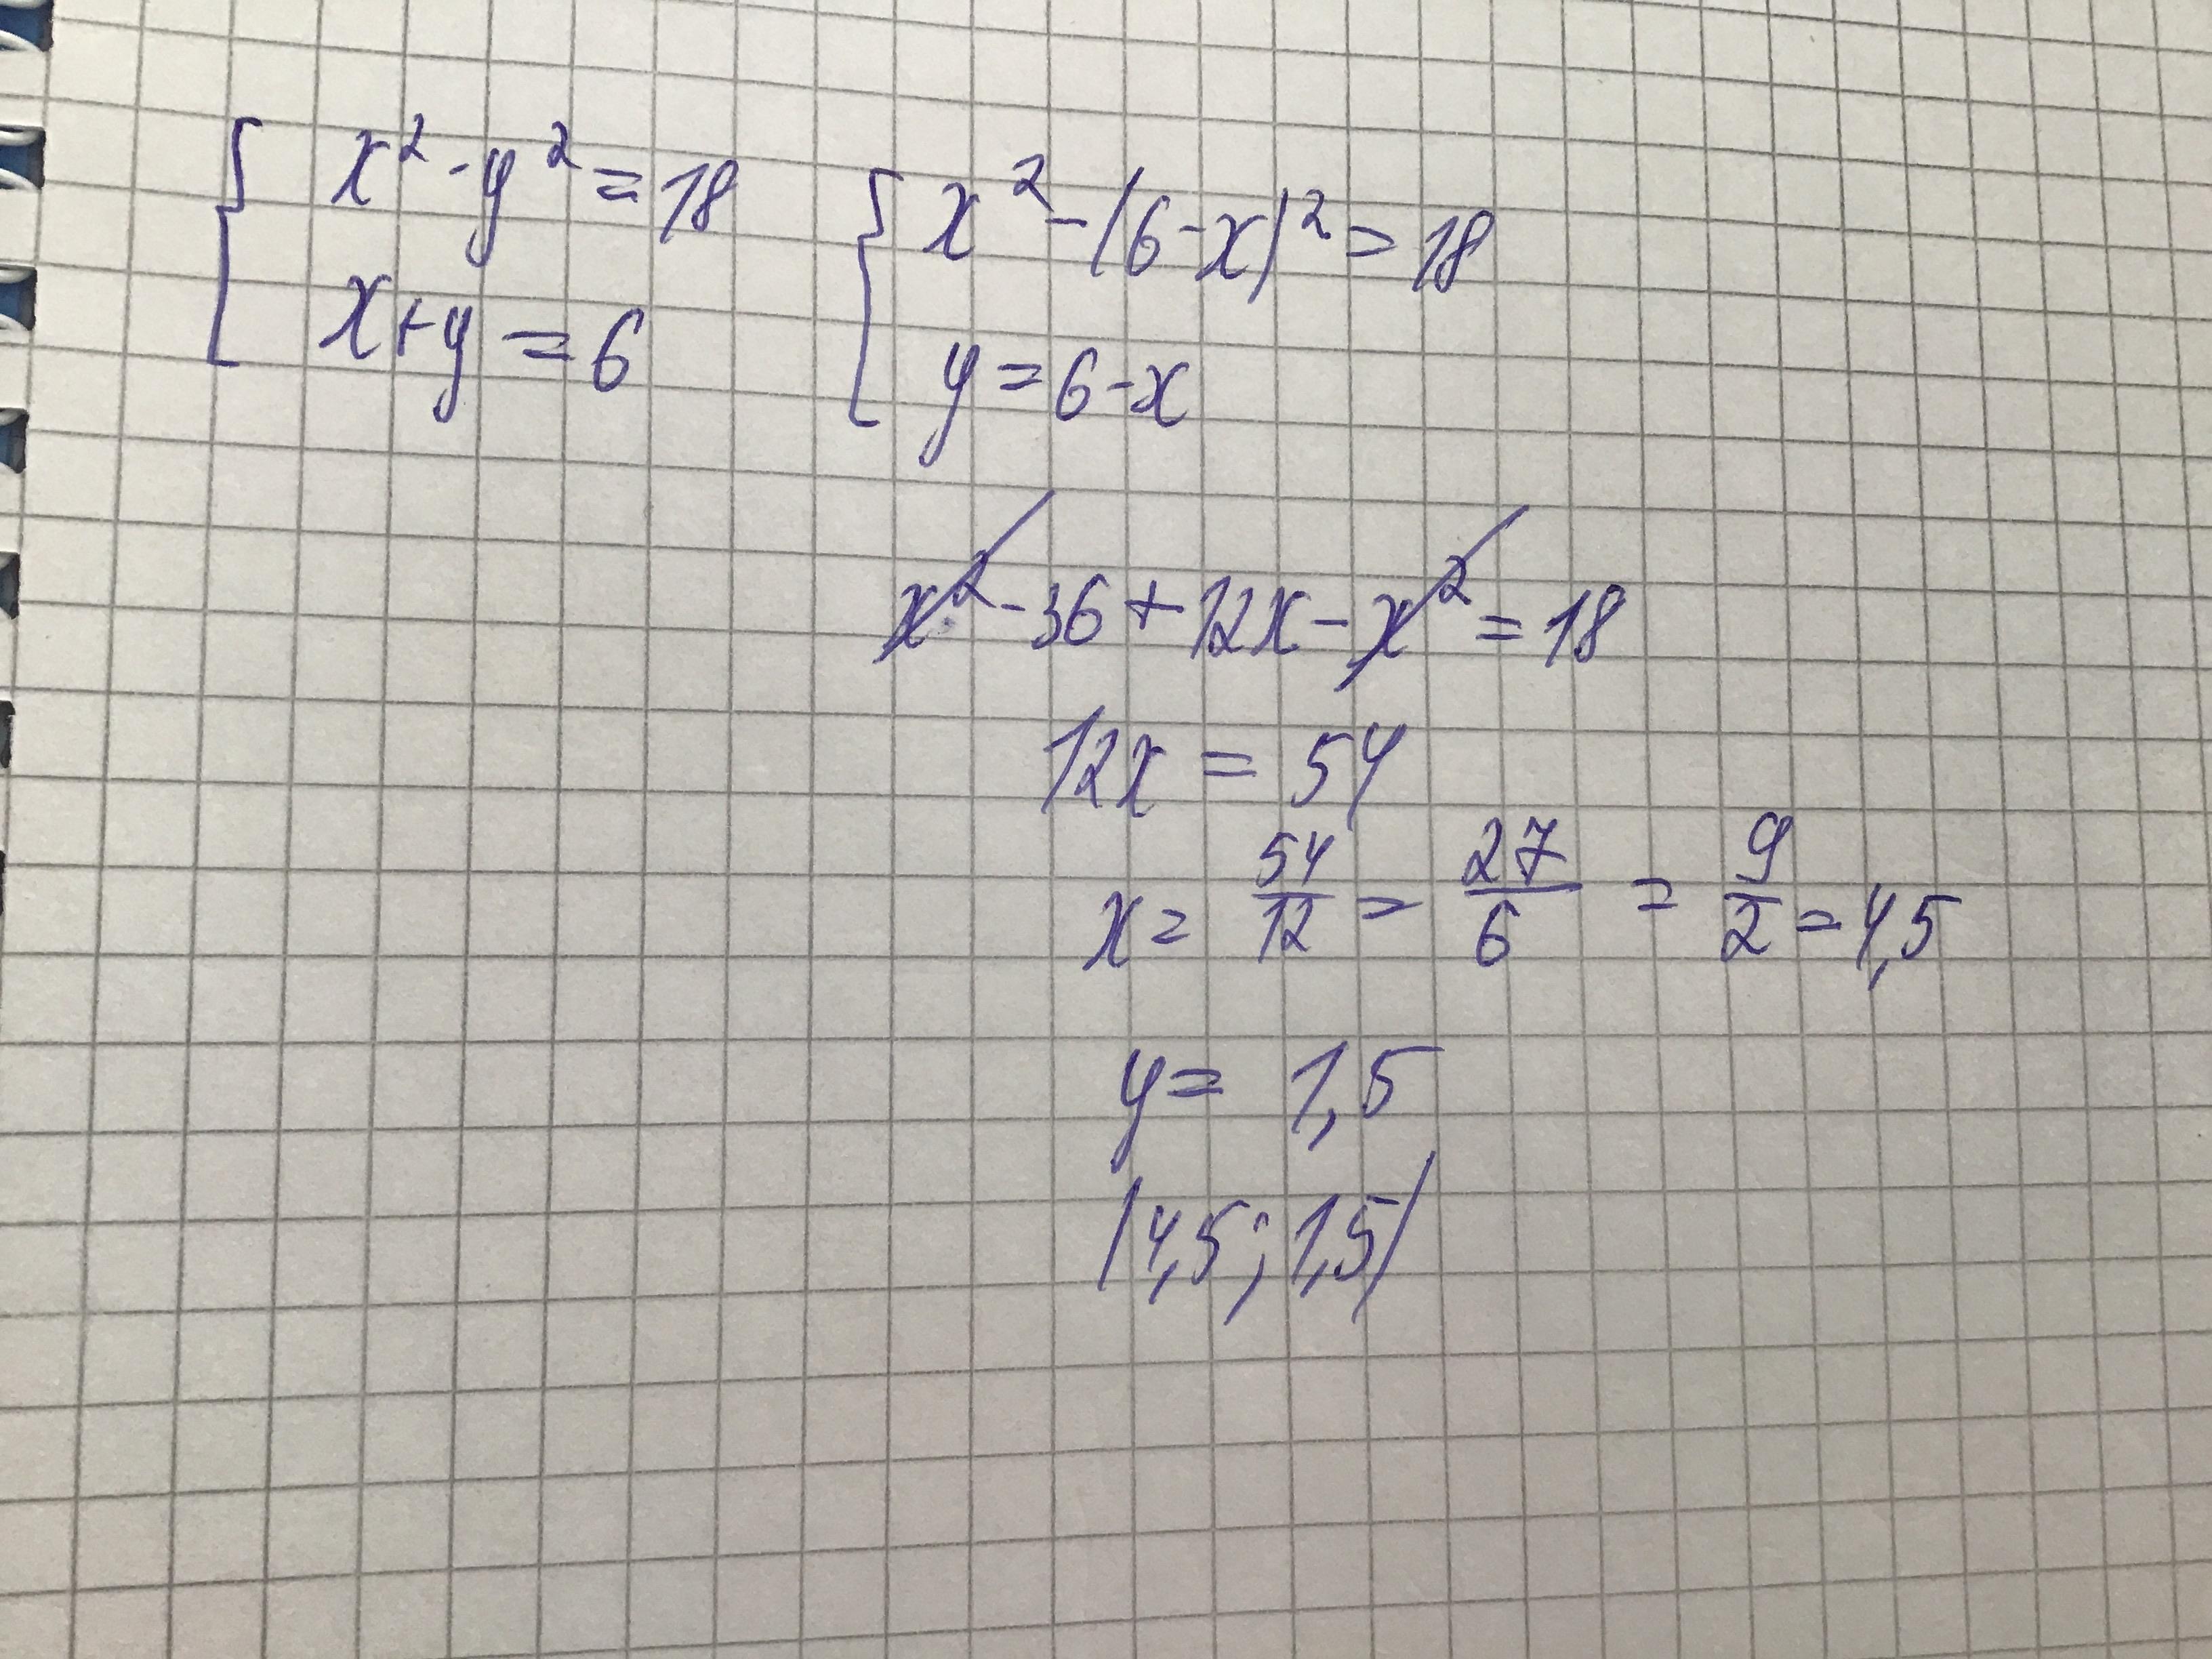 { x² - y² = 18
x + y = 6
{ x² - (6 - x)² = 18
y = 6 - x
x² - 36 + 12x - x² = 18
12x = 54
x = 54/12 = 27/6 = 9/2 = 4,5
y = 1,5
(4,5; 1,5)